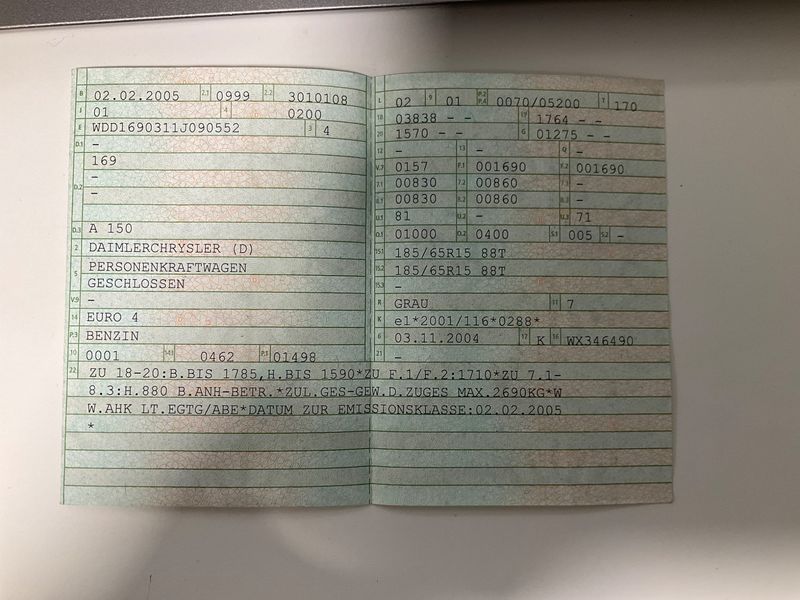 B 02.02.2005 2.1 0999 2.2 3010108
J 01 4 0200
E WDD1690311J090552 3 4
D.1 -
169
D.2 -
-
D.3 A 150
2 DAIMLERCHRYSLER (D)
5 PERSONENKRAFTWAGEN
GESCHLOSSEN
V.9 -
14 EURO 4
P.3 BENZIN
10 0001 14.1 0462 P.1 01498
L 02 9 01 P.2 P.4 0070/05200 T 170
18 03838 - - 19 1764 - -
20 1570 - - G 01275 - -
12 - 13 - Q -
V.7 0157 F.1 001690 F.2 001690
7.1 00830 7.2 00860 7.3 -
8.1 00830 8.2 00860 8.3 -
U.1 81 U.2 - U.3 71
O.1 01000 O.2 0400 S.1 005 S.2 -
15.1 185/65R15 88T
15.2 185/65R15 88T
15.3 -
R GRAU 11 7
K e1*2001/116*0288*
6 03.11.2004 17 K 16 WX346490
21 -
22 ZU 18-20:B.BIS 1785,H.BIS 1590*ZU F.1/F.2:1710*ZU 7.1-
8.3:H.880 B.ANH-BETR.*ZUL.GES-GEW.D.ZUGES MAX.2690KG*W
W.AHK LT.EGTG/ABE*DATUM ZUR EMISSIONSKLASSE:02.02.2005
*